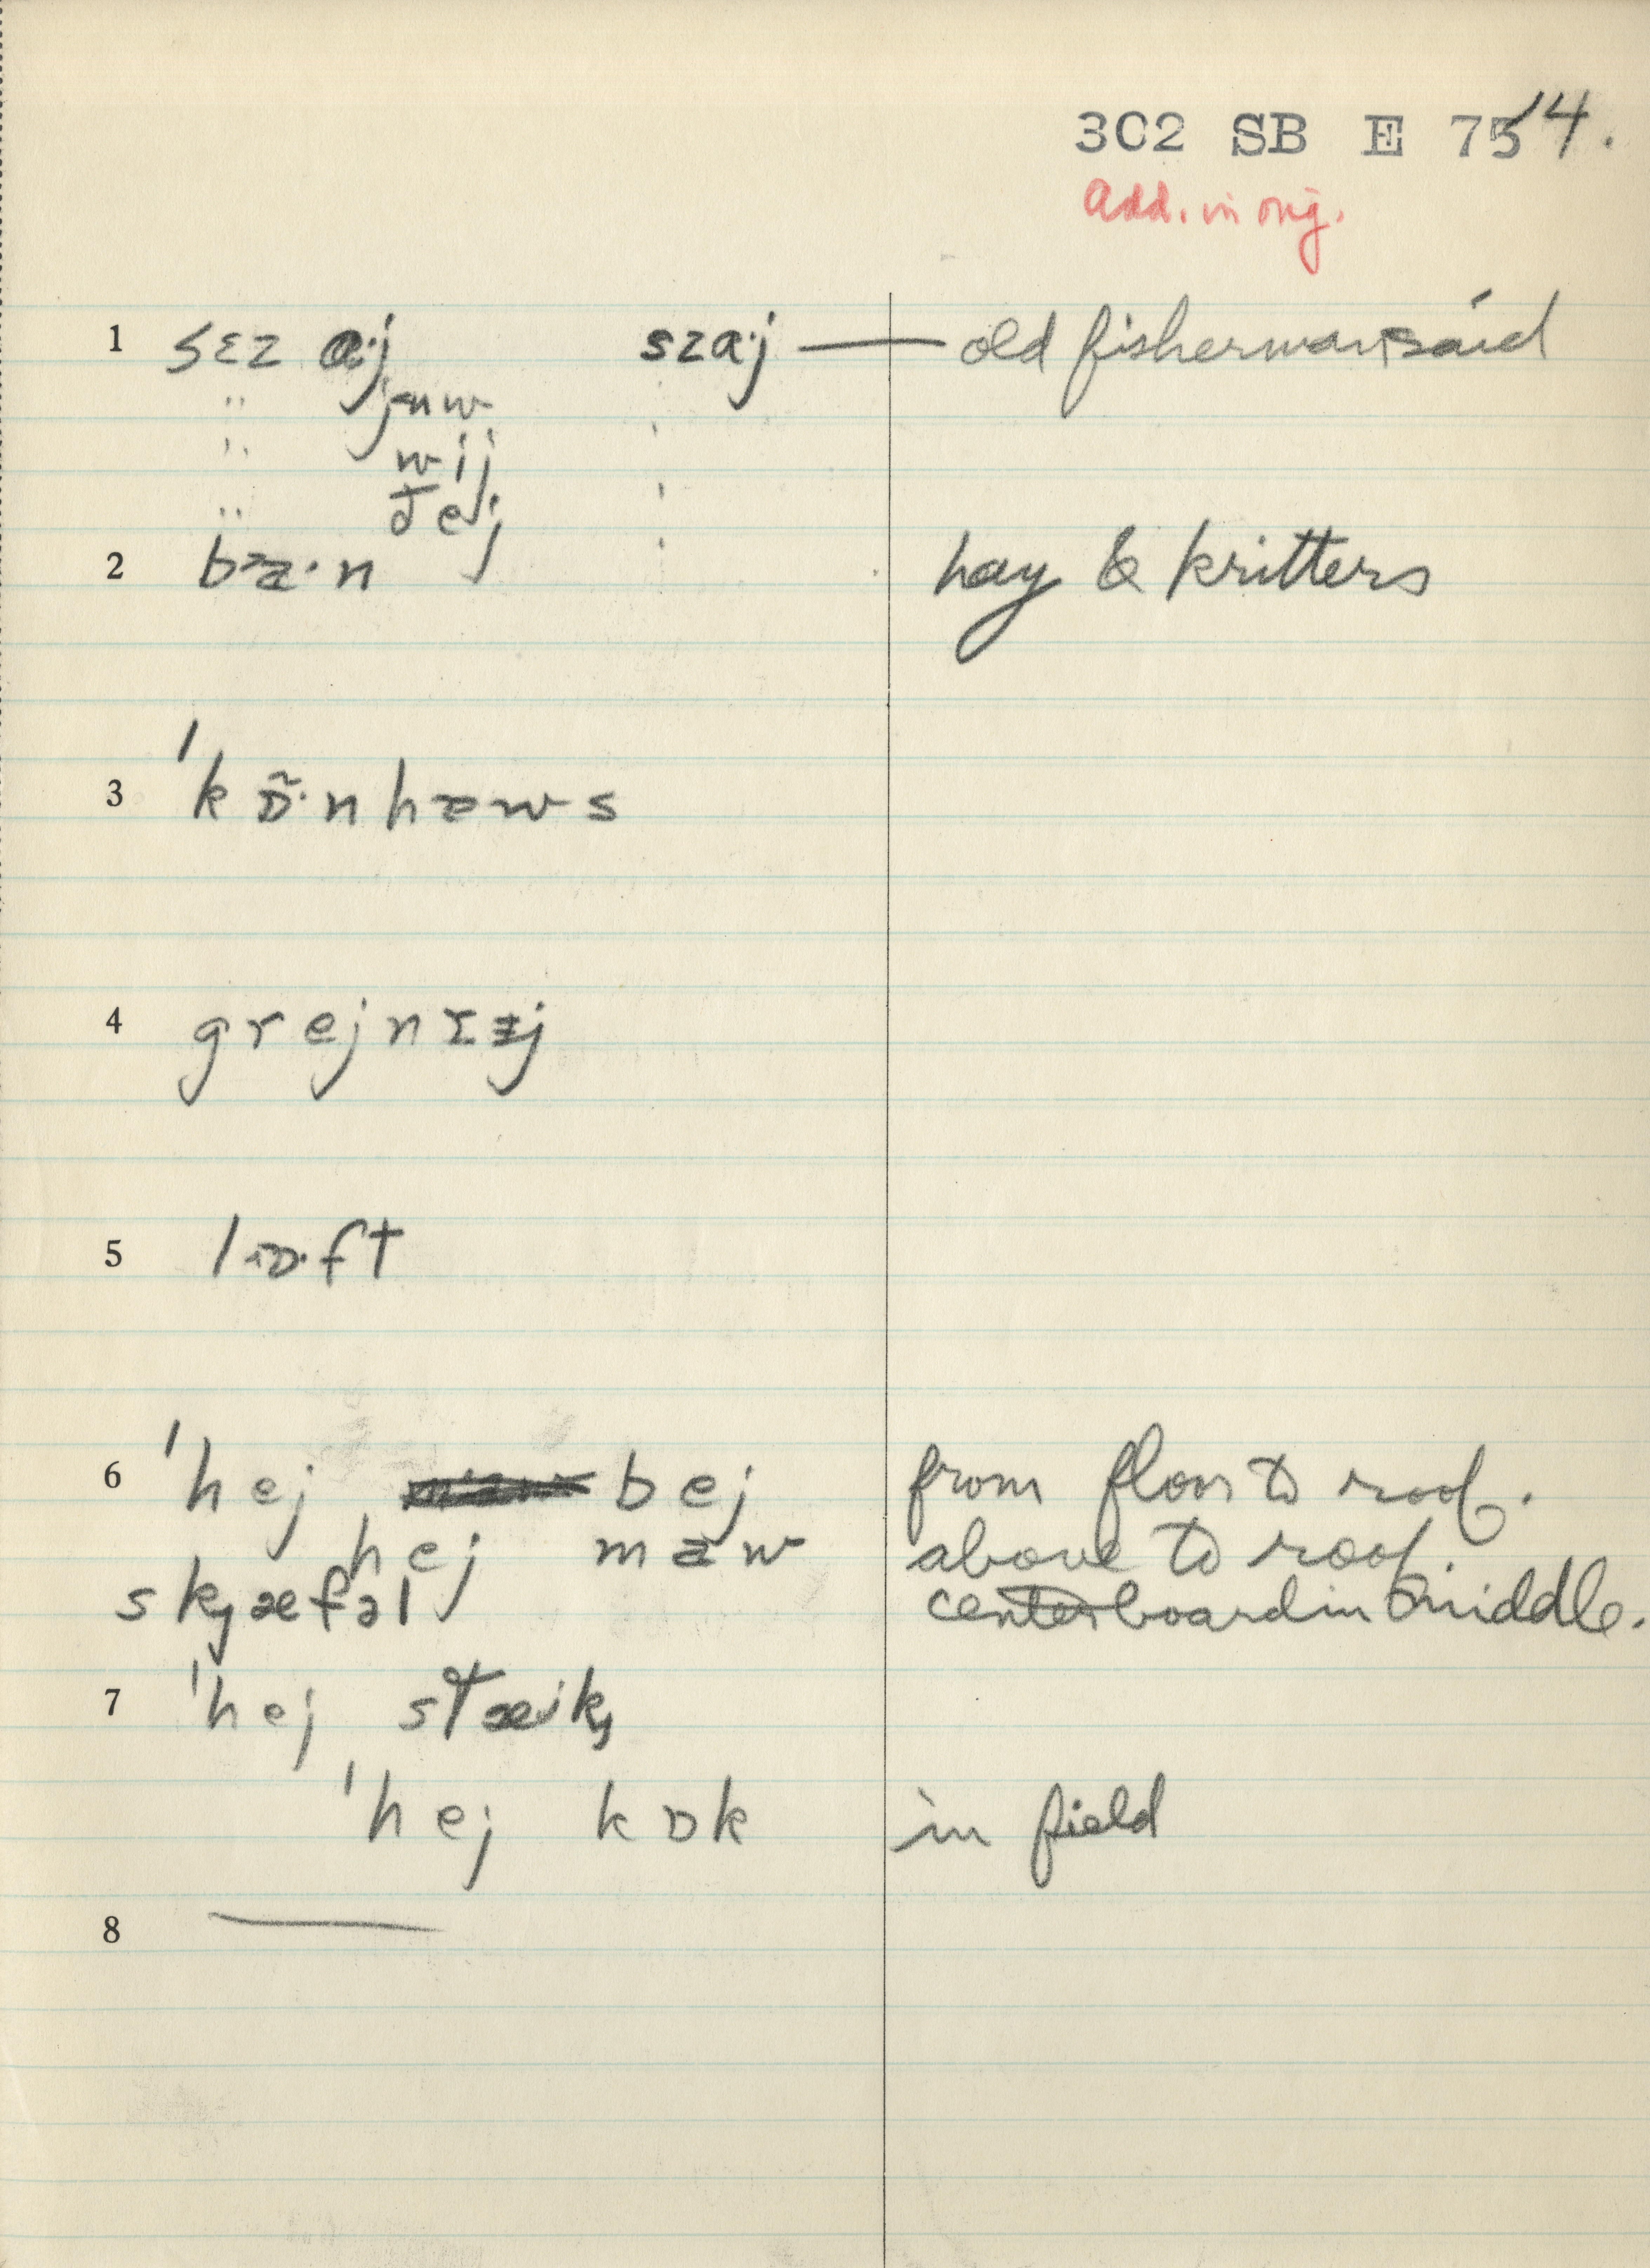 302 SB E 75 14.
Add. in orig.
1 sɛz a·j sza·j — old fisherman said
" juw
" wij
" ðej
2 bɐa·n hay & kritters
3 'kɒ̃·nhɐws
4 grejnɪɨj
5 lɒ·ft
6 'hej bej from floor to roof.
hej maw above to roof.
skj æfəl centerboard in middle.
7 'hej stæik
'hej kɒk in field
8 —